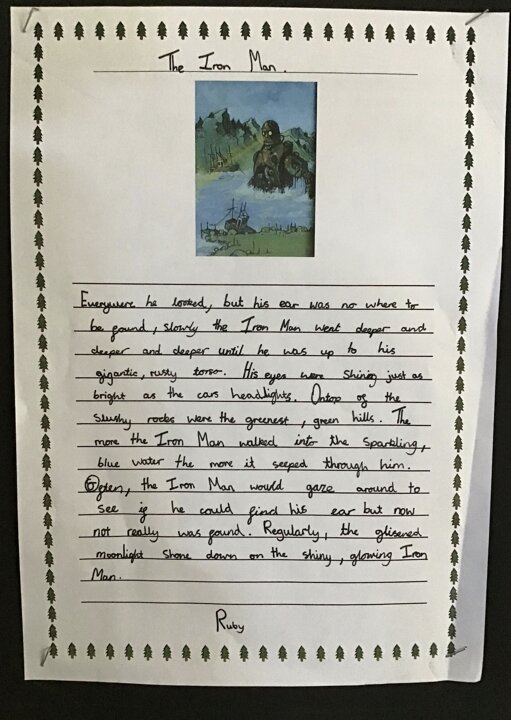 The Iron Man.
Everywere he looked, but his ear was no where to
be found, slowly the Iron Man went deeper and
deeper and deeper until he was up to his
gigantic, rusty torso. His eyes were shining just as
bright as the cars headlights. Ontop of the
slushy rocks were the greenest, green hills. The
more the Iron Man walked into the sparkling,
blue water the more it seeped through him.
Often, the Iron Man would gaze around to
see if he could find his ear but now
not really was found. Regularly, the glisened
moonlight shone down on the shiny, glowing Iron
Man.
Ruby